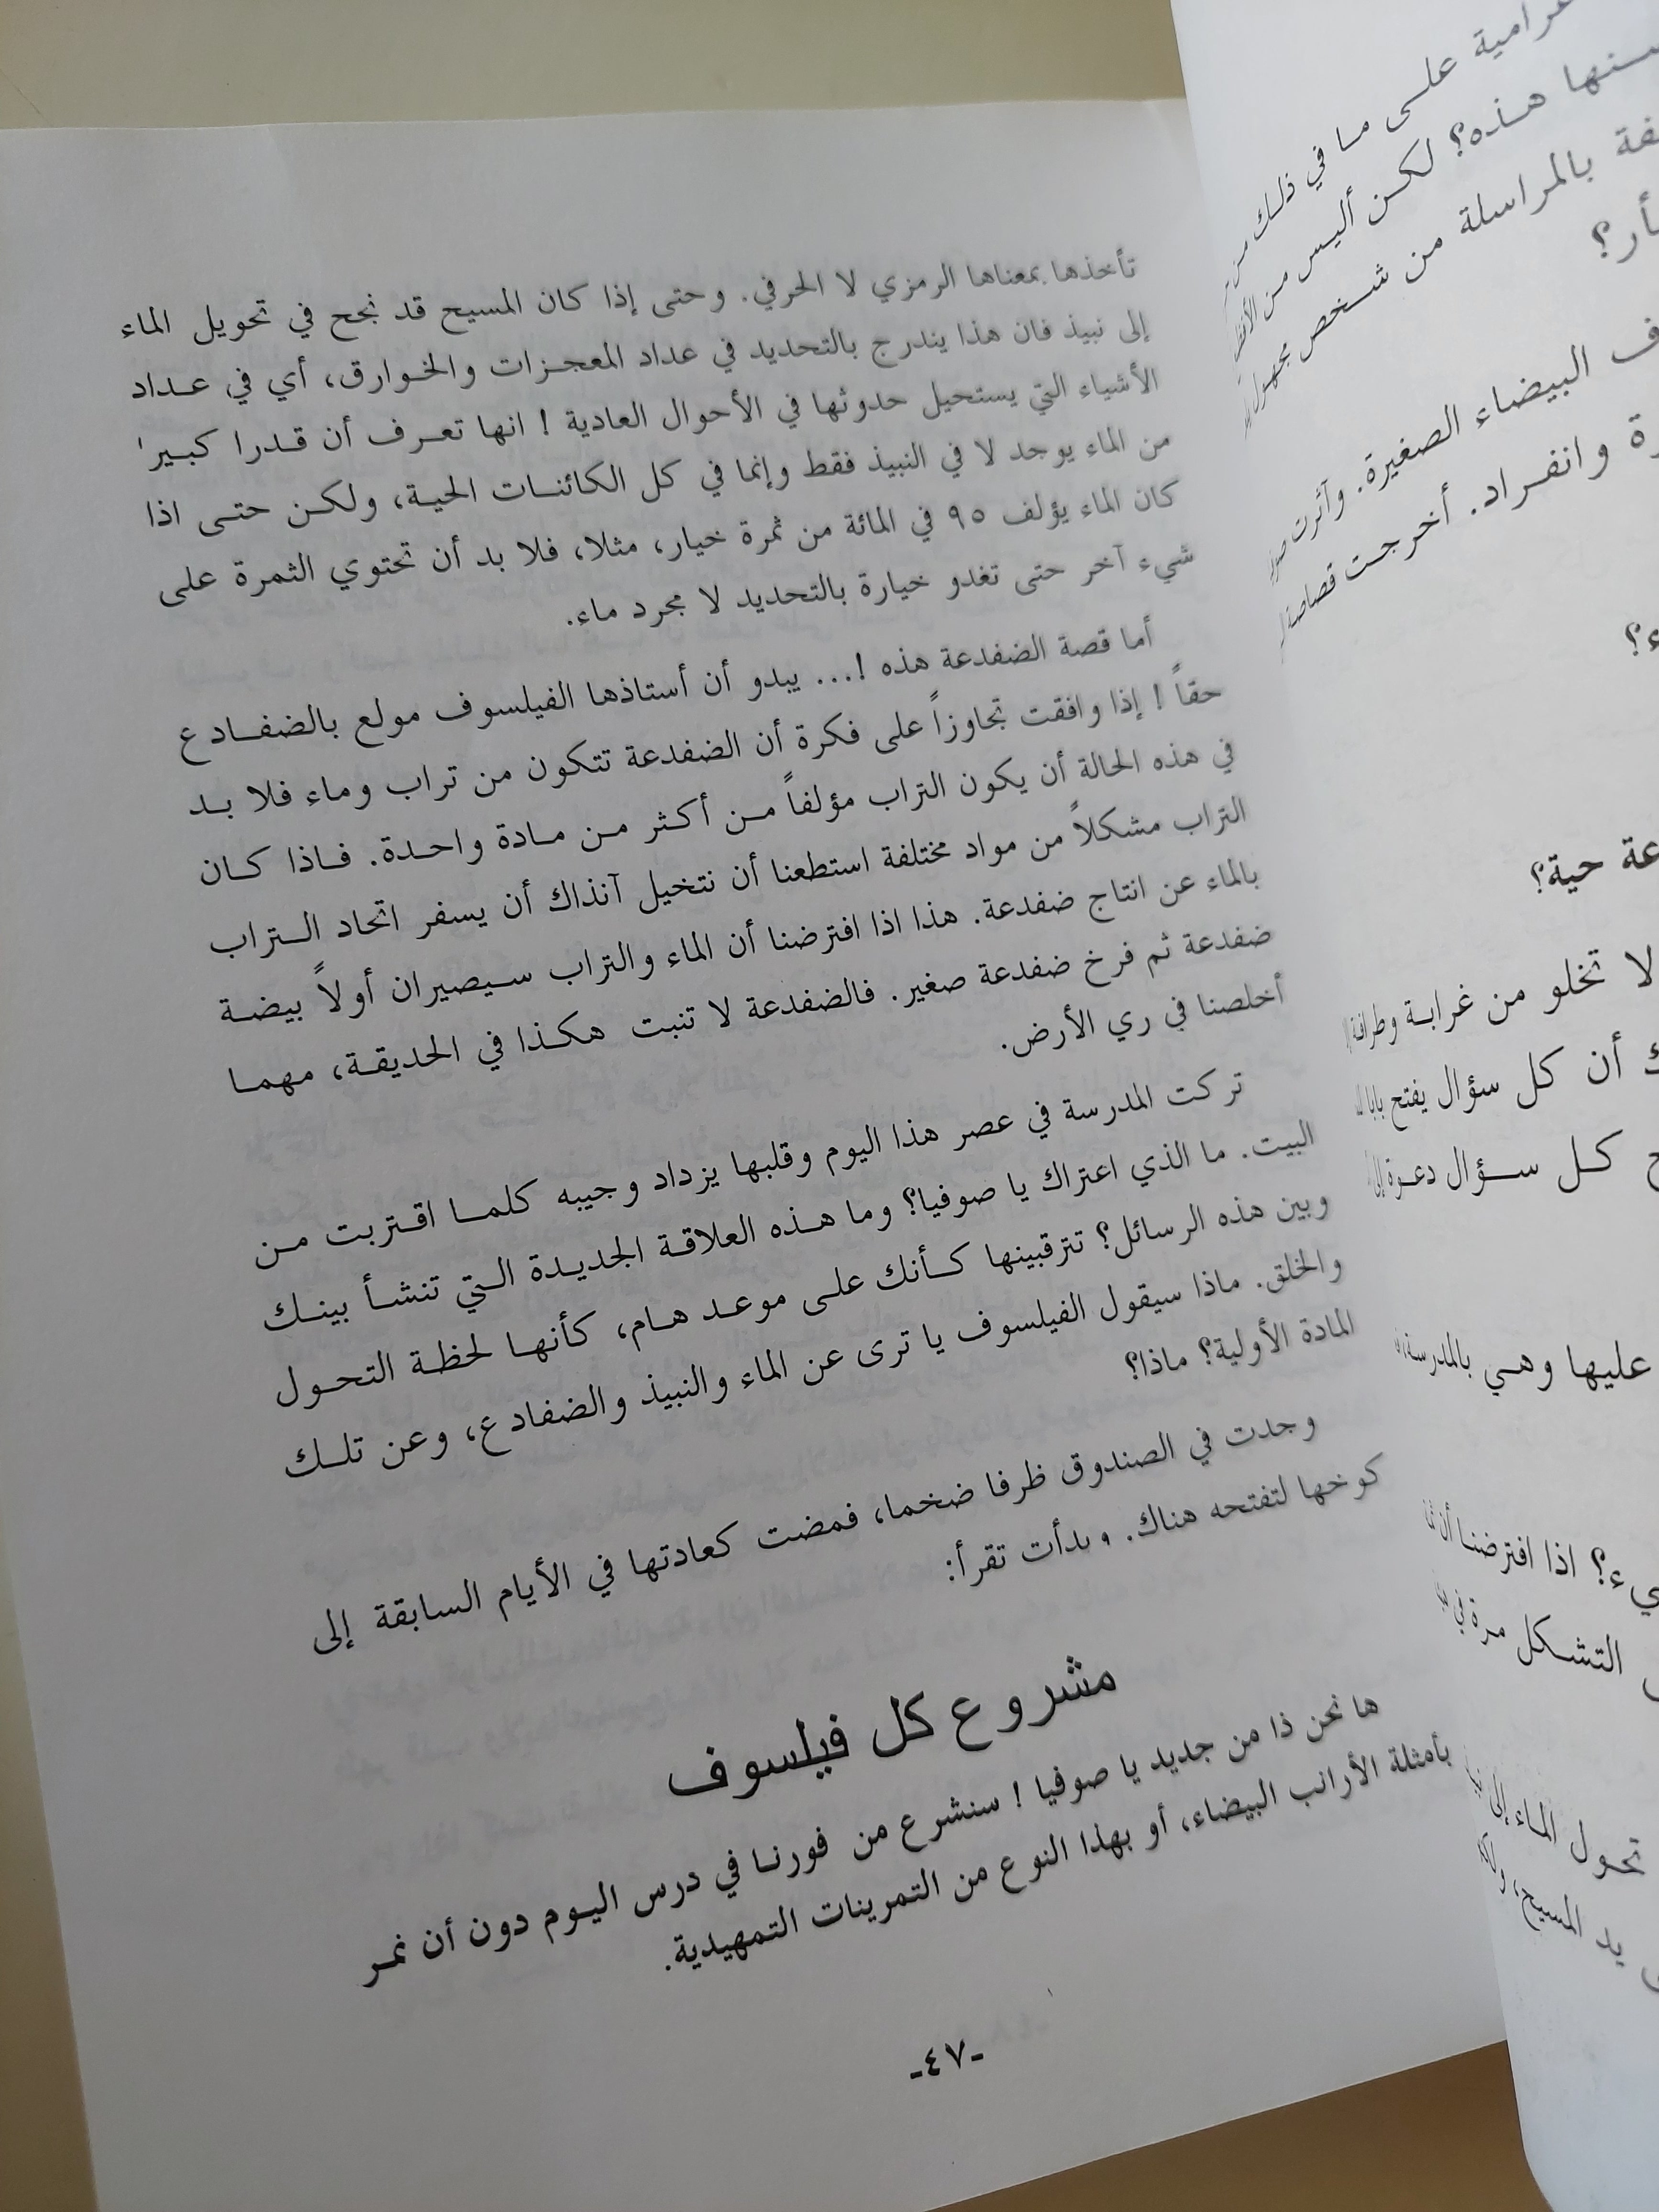 تأخذها بمعناها الرمزي لا الحرفي. وحتى إذا كان المسيح قد نجح في تحويل الماء
إلى نبيذ فان هذا يندرج بالتحديد في عداد المعجزات والخوارق، أي في عداد
الأشياء التي يستحيل حدوثها في الأحوال العادية ! انها تعرف أن قدرا كبير'
من الماء يوجد لا في النبيذ فقط وإنما في كل الكائنات الحية، ولكن حتى اذا
كان الماء يؤلف ٩٥ في المائة من ثمرة خيار، مثلا، فلا بد أن تحتوي الثمرة على
شيء آخر حتى تغدو خيارة بالتحديد لا مجرد ماء.
أما قصة الضفدعة هذه !... يبدو أن أستاذها الفيلسوف مولع بالضفادع
حقاً ! إذا وافقت تجاوزاً على فكرة أن الضفدعة تتكون من تراب وماء فلا بد
في هذه الحالة أن يكون التراب مؤلفاً من أكثر من مادة واحدة. فاذا كان
التراب مشكلاً من مواد مختلفة استطعنا أن نتخيل آنذاك أن يسفر اتحاد التراب
بالماء عن انتاج ضفدعة. هذا اذا افترضنا أن الماء والتراب سيصيران أولاً بيضة
ضفدعة ثم فرخ ضفدعة صغير. فالضفدعة لا تنبت هكذا في الحديقة، مهما
أخلصنا في ري الأرض.
تركت المدرسة في عصر هذا اليوم وقلبها يزداد وجيبه كلما اقتربت من
البيت. ما الذي اعتراك يا صوفيا؟ وما هذه العلاقة الجديدة التي تنشأ بينك
وبين هذه الرسائل؟ تترقبينها كأنك على موعد هام، كأنها لحظة التحول
والخلق. ماذا سيقول الفيلسوف يا ترى عن الماء والنبيذ والضفادع، وعن تلك
المادة الأولية؟ ماذا؟
وجدت في الصندوق ظرفا ضخما، فمضت كعادتها في الأيام السابقة إلى
كوخها لتفتحه هناك. وبدأت تقرأ:
مشروع كل فيلسوف
ها نحن ذا من جديد يا صوفيا ! سنشرع من فورنا في درس اليوم دون أن نمر
بأمثلة الأرانب البيضاء، أو بهذا النوع من التمرينات التمهيدية.
-٤٧-
على ما في ذلك
هذه؟ لكن أليس من
بالمراسلة من شخص مجهول
البيضاء الصغيرة. وآثرت
وانفراد. أخرجت
حية؟
لا تخلو من غرابة وطرافة
أن كل سؤال يفتح بابا
كل سؤال دعوة
عليها وهي بالمدرسة
اذا افترضنا أن
التشكل مرة في
تحول الماء إلى
يد المسيح،